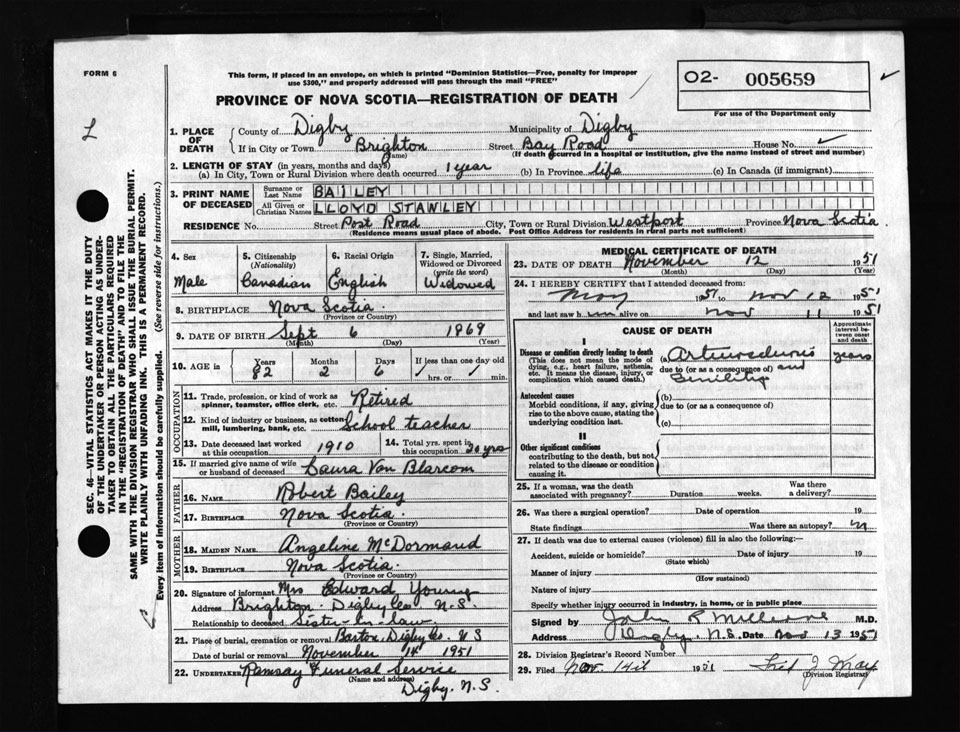 FORM 6
This form, if placed in an envelope, on which is printed "Dominion Statistics—Free, penalty for improper
use $300," and properly addressed will pass through the mail "FREE"
O2- 005659
For use of the Department only
PROVINCE OF NOVA SCOTIA—REGISTRATION OF DEATH
1. PLACE OF DEATH
County of Digby Municipality of Digby
If in City or Town Brighton (Name) Street Bay Road House No.
(If death occurred in a hospital or institution, give the name instead of street and number)
2. LENGTH OF STAY (in years, months and days)
(a) In City, Town or Rural Division where death occurred 1 year (b) In Province life (c) In Canada (if immigrant)
3. PRINT NAME OF DECEASED
Surname or Last Name BAILEY
All Given or Christian Names LLOYD STANLEY
RESIDENCE No. Street Post Road City, Town or Rural Division Westport Province Nova Scotia
(Residence means usual place of abode. Post Office Address for residents in rural parts not sufficient)
4. Sex Male
5. Citizenship (Nationality) Canadian
6. Racial Origin English
7. Single, Married, Widowed or Divorced (write the word) Widowed
8. BIRTHPLACE Nova Scotia
(Province or Country)
9. DATE OF BIRTH Sept 6 1869
(Month) (Day) (Year)
10. AGE in Years 82 Months 2 Days 6 If less than one day old hrs. or min.
OCCUPATION
11. Trade, profession, or kind of work as spinner, teamster, office clerk, etc. Retired
12. Kind of industry or business, as cotton mill, lumbering, bank, etc. School teacher
13. Date deceased last worked at this occupation 1910
14. Total yrs. spent in this occupation 20 yrs
15. If married give name of wife or husband of deceased Laura Van Blarcom
FATHER
16. NAME Robert Bailey
17. BIRTHPLACE Nova Scotia
(Province or Country)
MOTHER
18. MAIDEN NAME Angeline McDormand
19. BIRTHPLACE Nova Scotia
(Province or Country)
20. Signature of informant Mrs Edward Young
Address Brighton Digby Co N.S.
Relationship to deceased Sister-in-law
21. Place of burial, cremation or removal Barton, Digby Co. N S
Date of burial or removal November 14 1951
22. UNDERTAKER Ramsay Funeral Service
(Name and address)
Digby. N.S.
MEDICAL CERTIFICATE OF DEATH
23. DATE OF DEATH November 12 1951
(Month) (Day) (Year)
24. I HEREBY CERTIFY that I attended deceased from:
May 1951 to Nov 12 1951
and last saw him alive on Nov 11 1951
CAUSE OF DEATH
Approximate interval between onset and death
I
Disease or condition directly leading to death
(This does not mean the mode of dying, e.g., heart failure, asthenia, etc. It means the disease, injury, or complication which caused death.)
(a) years
due to (or as a consequence of) and
Senility
Antecedent causes
Morbid conditions, if any, giving rise to the above cause, stating the underlying condition last.
(b)
due to (or as a consequence of)
(c)
II
Other significant conditions
contributing to the death, but not related to the disease or condition causing it.
25. If a woman, was the death associated with pregnancy? Duration weeks. Was there a delivery?
26. Was there a surgical operation? Date of operation 19
State findings Was there an autopsy?
27. If death was due to external causes (violence) fill in also the following:—
Accident, suicide or homicide? Date of injury 19
(State which)
Manner of injury
(How sustained)
Nature of injury
Specify whether injury occurred in industry, in home, or in public place
Signed by John R M.D.
Address Digby, N.S. Date Nov 13 1951
28. Division Registrar's Record Number
29. Filed Nov. 14th 1951 Fred J May
(Division Registrar)
SEC. 46—VITAL STATISTICS ACT MAKES IT THE DUTY
OF THE UNDERTAKER OR PERSON ACTING AS UNDERTAKER
TO OBTAIN ALL THE PARTICULARS REQUIRED
IN THE "REGISTRATION OF DEATH" AND TO FILE THE
SAME WITH THE DIVISION REGISTRAR WHO SHALL ISSUE THE BURIAL PERMIT.
WRITE PLAINLY WITH UNFADING INK. THIS IS A PERMANENT RECORD.
Every item of information should be carefully supplied. (See reverse side for instructions.)